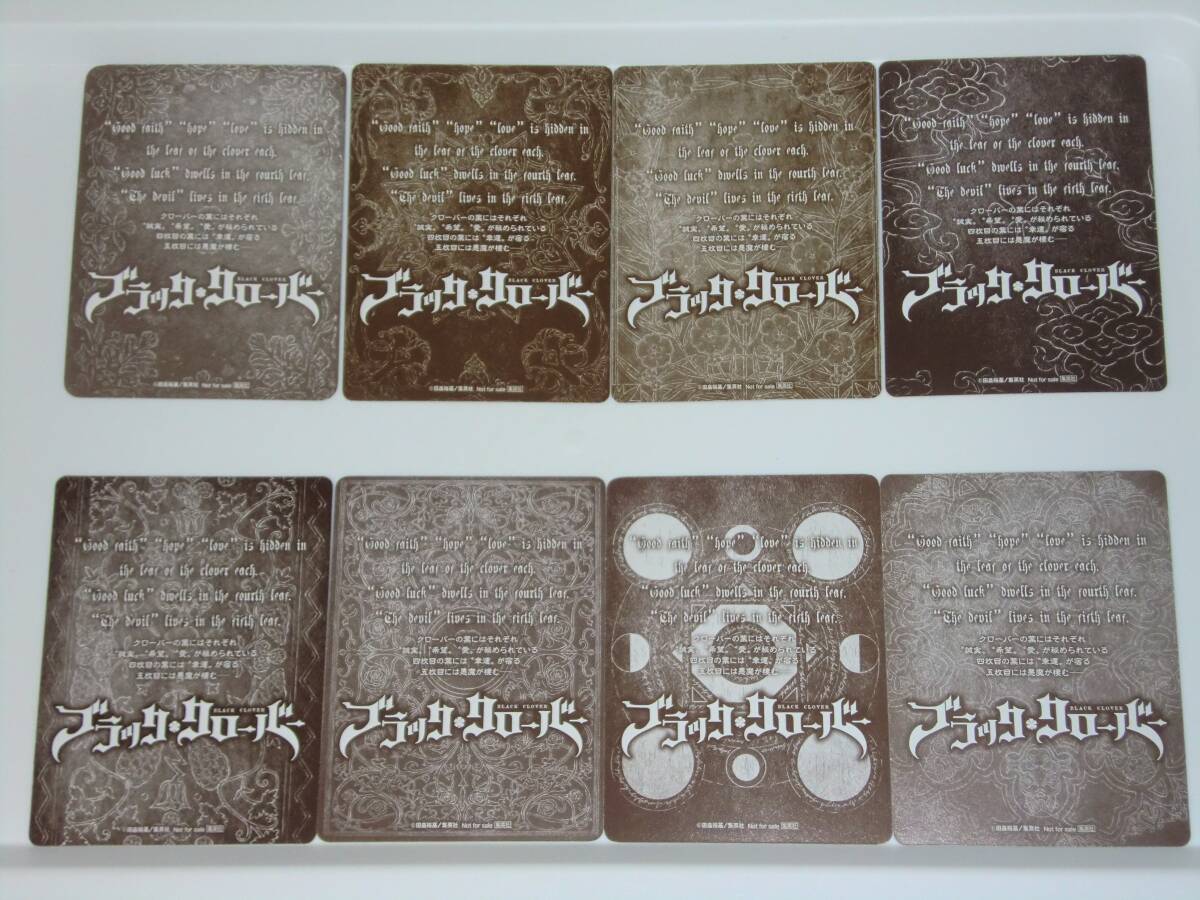 “Good faith” “hope” “love” is hidden in
the leaf of the clover each.
“Good luck” dwells in the fourth leaf.
“The devil” lives in the fifth leaf.
クローバーの葉にはそれぞれ
“誠実”、“希望”、“愛”が秘められている
四枚目の葉には“幸運”が宿る
五枚目には悪魔が棲む──
BLACK CLOVER
ブラッククローバー
©田畠裕基/集英社 Not for sale 集英社
“Good faith” “hope” “love” is hidden in
the leaf of the clover each.
“Good luck” dwells in the fourth leaf.
“The devil” lives in the fifth leaf.
クローバーの葉にはそれぞれ
“誠実”、“希望”、“愛”が秘められている
四枚目の葉には“幸運”が宿る
五枚目には悪魔が棲む──
BLACK CLOVER
ブラッククローバー
©田畠裕基/集英社 Not for sale 集英社
“Good faith” “hope” “love” is hidden in
the leaf of the clover each.
“Good luck” dwells in the fourth leaf.
“The devil” lives in the fifth leaf.
クローバーの葉にはそれぞれ
“誠実”、“希望”、“愛”が秘められている
四枚目の葉には“幸運”が宿る
五枚目には悪魔が棲む──
BLACK CLOVER
ブラッククローバー
©田畠裕基/集英社 Not for sale 集英社
“Good faith” “hope” “love” is hidden in
the leaf of the clover each.
“Good luck” dwells in the fourth leaf.
“The devil” lives in the fifth leaf.
クローバーの葉にはそれぞれ
“誠実”、“希望”、“愛”が秘められている
四枚目の葉には“幸運”が宿る
五枚目には悪魔が棲む──
BLACK CLOVER
ブラッククローバー
©田畠裕基/集英社 Not for sale 集英社
“Good faith” “hope” “love” is hidden in
the leaf of the clover each.
“Good luck” dwells in the fourth leaf.
“The devil” lives in the fifth leaf.
クローバーの葉にはそれぞれ
“誠実”、“希望”、“愛”が秘められている
四枚目の葉には“幸運”が宿る
五枚目には悪魔が棲む──
BLACK CLOVER
ブラッククローバー
©田畠裕基/集英社 Not for sale 集英社
“Good faith” “hope” “love” is hidden in
the leaf of the clover each.
“Good luck” dwells in the fourth leaf.
“The devil” lives in the fifth leaf.
クローバーの葉にはそれぞれ
“誠実”、“希望”、“愛”が秘められている
四枚目の葉には“幸運”が宿る
五枚目には悪魔が棲む──
BLACK CLOVER
ブラッククローバー
©田畠裕基/集英社 Not for sale 集英社
“Good faith” “hope” “love” is hidden in
the leaf of the clover each.
“Good luck” dwells in the fourth leaf.
“The devil” lives in the fifth leaf.
クローバーの葉にはそれぞれ
“誠実”、“希望”、“愛”が秘められている
四枚目の葉には“幸運”が宿る
五枚目には悪魔が棲む──
BLACK CLOVER
ブラッククローバー
©田畠裕基/集英社 Not for sale 集英社
“Good faith” “hope” “love” is hidden in
the leaf of the clover each.
“Good luck” dwells in the fourth leaf.
“The devil” lives in the fifth leaf.
クローバーの葉にはそれぞれ
“誠実”、“希望”、“愛”が秘められている
四枚目の葉には“幸運”が宿る
五枚目には悪魔が棲む──
BLACK CLOVER
ブラッククローバー
©田畠裕基/集英社 Not for sale 集英社